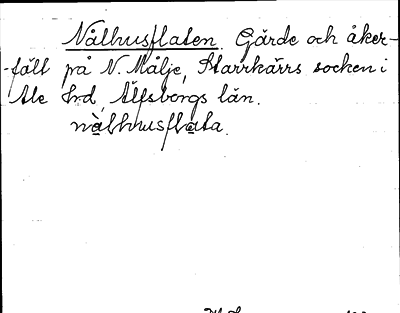 Nålhusflaten. Gärde och åker-
-fält på N. Målje, Starrkärrs socken i
Ale Hrd, Älfsborgs län.
nàlhhusflata.